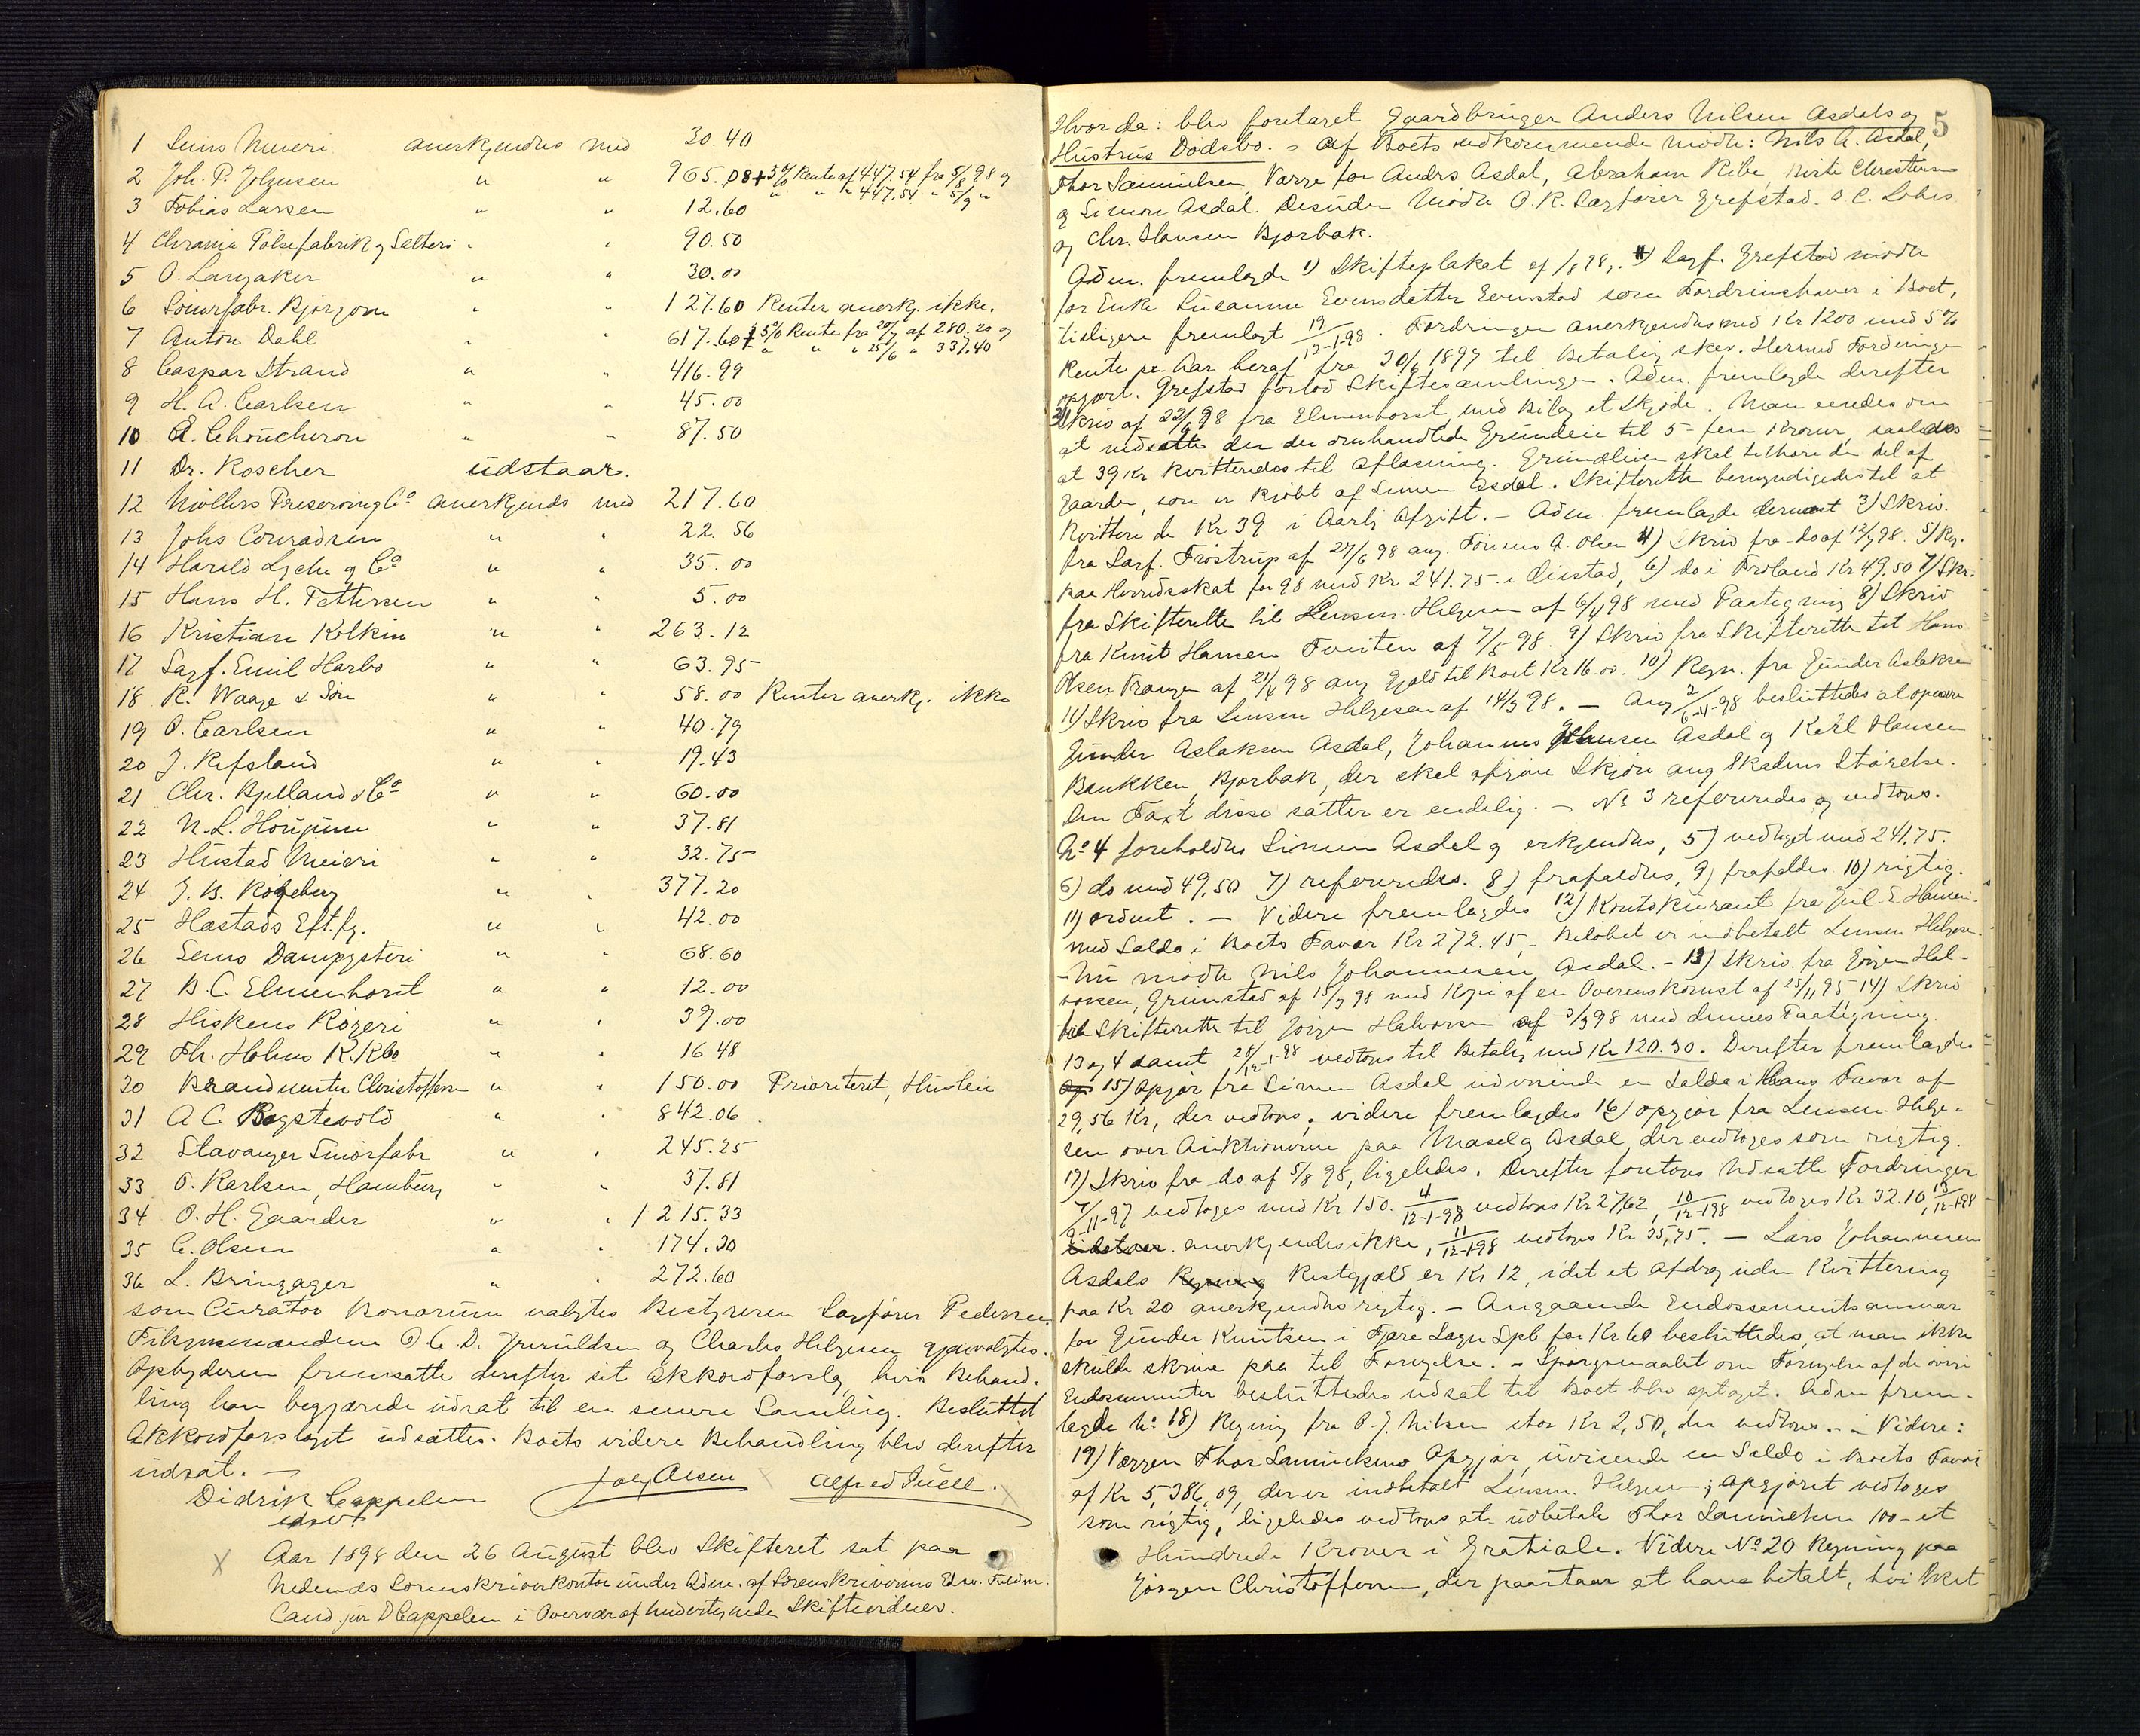 1 Sems Meieri anerkjendes med 30.40
2 Joh. P. Johnsen " " 965.08 + 5% Rente af 447.54 fra 5/8 98 og
" " " 447.54 " 5/9 "
3 Tobias Larsen " " 12.60
4 Chrania Pølsefabrik og Salteri " " 90.50
5 O. Langaker " " 30.00
6 Smørfabr. Bjørgvin " " 127.60 Renter anerkj. ikke.
7 Anton Dahl " " 617.60 + 5% Rente fra 20/7 af 280.20 og
" " " 25/6 " 337.40
8 Caspar Strand " " 416.99
9 H. A. Carlsen " " 45.00
10 A. Choucheron " " 87.50
11 Dr. Roscher udstaar.
12 Møllers Preserving Co anerkjends med 217.60
13 Johs Conradsen " " 22.56
14 Harald Lyche og Co " " 35.00
15 Hans H. Pettersen " " 5.00
16 Kristian Kolkin " " 263.12
17 Sagf. Emil Harbo " " 63.95
18 R. Waage & Søn " " 58.00 Renter anerkj. ikke
19 O. Carlsen " " 40.79
20 J. Refsland " " 19.43
21 Chr. Bjelland & Co " " 60.00
22 N. L. Houjum " " 37.81
23 Hustad Meieri " " 32.75
24 J. B. Rögeberg " " 377.20
25 Hæstads Eft.fg. " " 42.00
26 Sems Dampysteri " " 68.60
27 B. C. Elmenhorst " " 12.00
28 Hiskens Rögeri " " 39.00
29 Th. Holms K. Kbo " " 16 48
30 Brandmester Christoffersen " " 150.00 Prioriteret, Husleie
31 A C Bagstevold " " 842.06.
32 Stavanger Smörfabr " " 245.25
33 O. Karlsen, Hamburg " " 37.81
34 O. H. Gaarder " " 1215.33
35 C. Olsen " " 174.30
36 L. Bringager " " 272.60
som Curator bonorum valgtes Bestyreren Sagfører Pedersen.
Tilsynsmændene O C. D. Jreruldsen og Charles Helgesen gjenvalgtes.
Opbyderen fremsatte derefter sit Akkordforslag, hvis Behand-
ling han begjærede udsat til en senere Samling. Besluttet
Akkordforslaget udsættes. Boets videre Behandling blev derefter
udsat. —
Didrik Cappelen Olsen Alfred Juell.
edsv.
Aar 1898 den 26 August blev Skifteret sat paa
Nedenæs Sorenskriverkontor under Adm. af Sorenskriverens Edsv. Fuldm.
Cand. jur D Cappelen i Overvær af undertegnede Skiftevidner.
5
Hvor da: blev foretaget Gaardbruger Anders Nilsen Asdals og
Hustrus Dødsbo. - Af Boets vedkommende mødte: Nils A. Asdal,
Thor Samuelsen, Værge for Andrs Asdal, Abraham Ribe, Birte Christensen
og Simon Asdal. Desuden mødte O. R. Sagfører Grefstad. S. C. Løhrs
og Chr. Hansen Bjorbak.
Adm. fremlagde 1) Skifteplakat af 1/8 98,. Sagf. Grefstad mødte
for Enke Susanne Evensdatter Evenstad som Fordringshaver i Boet,
tidligere fremlagt 19/12-1-98. Fordringen anerkjendtes med Kr 1200 med 5%
Rente pr. Aar heraf fra 30/6 1897 til Betaling sker. Hermed Fordringen
opgjort. Grefstad forlod Skiftesamlingen. Adm. fremlagde derefter
2) Skriv af 22/6 98 fra Elmenhorst med Bilag et Skjøde. Man enedes om
at nedsætte den der omhandlede Grundleie til 5 - fem Kroner, saaledes
at 39 Kr kvitteredes til Aflösning. Grundleien skal tilhøre den del af
Gaarden, som er kjøbt af Simon Asdal. Skifteretten bemyndigedes til at
kvittere de Kr 39 i Aarlig Afgift. - Adm. fremlagde dernæst 3) Skriv.
fra Sagf. Frøstrup af 27/6 98 ang. Tönnes A. Olsen 4) Skriv fra do af 12/7 98. 5) Rg.
paa Herredsskat for 98 med Kr 241.75 i Øiestad, 6) do i Froland Kr 49.50 7) Skr.
fra Skifteretten til Lensm. Helgesen af 6/4 98 med Paategning 8) Skriv
fra Knut Hansen Tveiten af 7/5 98. 9) Skriv fra Skifteretten til Hans
Olsen Vrangen af 21/4 98 ang. Gjæld til Boet Kr 16.00. 10) Regn. fra Gunder Aslaksen
11) Skriv fra Lensm Helgesen af 14/3 98. — Ang 2/6-4-98 besluttedes at opnævne
Gunder Aslaksen Asdal, Johannes Johnsen Asdal og Karl Hansen
Bænkken Bjorbak, der skal afgive Skjøn ang Skadens Størrelse.
Den Taxt disse sætter er endelig. - No 3 refereredes og vedtoges.
No 4 foreholdtes Simon Asdal og erkjendtes, 5) vedtaget med 241.75.
6) do med 49,50 7) refereredes. 8) frafaldtes, 9) frafaldtes 10) rigtig.
11) ordnet. — Videre fremlagdes 12) Kontokurant fra Juul E. Hansen.
med Saldo i Boets Favør Kr 272.45, - Beløbet er indbetalt Lensm Helgesen.
- Nu mødte Nils Johannesen Asdal. - 13) Skriv. fra Jörgen Hal-
vorsen, Grimstad af 15/7 98 med Kopi af en Overenskomst af 23/11 95 14) Skriv
fra Skifteretten til Jörgen Halvorsen af 3/3 98 med dennes Paategning.
13 og 4 samt 28/12-1-98 vedtoges til Betaling med Kr 120.30. Derefter fremlagdes
15) Opgjør fra Simon Asdal udvisende en Saldo i Hans Favør af
29,56 Kr, der vedtoges, videre fremlagdes 16) Opgjør fra Lensm Helge-
sen over Auktionerne paa Maselg Asdal, der vedtoges som rigtig.
17) Skriv fra do af 5/8 98, ligeledes. Derefter foretoges Udsatte Fordringer
7/11-97 vedtoges med Kr 150. 4/12-1-98 vedtoges Kr 27,62, 10/12-1-98 vedtoges Kr 32.10, 13/12-1-98
anerkjendes ikke, 11/12-1-98 vedtoges Kr 35,75. — Lars Johannesen
Asdals Restgjæld er Kr 12, idet et Afdrag uden Kvittering
paa Kr 20 anerkjendtes rigtig. - Angaaende Endossementsansvar
for Gunder Knutsen i Fjære Sogn Spb for Kr 60 besluttedes, at man ikke
skulde skrive paa til Fornyelse. - Spørgsmaalet om Fornyelse af de övrige
Endossementer besluttedes udsat til Boet blev optaget. Adm frem-
lagde No 18) Regning fra O. J. Nilsen stor Kr 2,50, der vedtoges. - Videre:
19) Værgen Thor Samuelsens Opgjør, udvisende en Saldo i Boets Favør
af Kr 5,386,09, der er indbetalt Lensm. Helgesen; Opgjøret vedtoges
som rigtig, ligeledes vedtoges at udbetale Thor Samuelsen 100 - et
Hundrede Kroner i Gratiale. Videre No 20 Regning paa
Jörgen Christoffersen, der paastaar at have betalt, hvilket